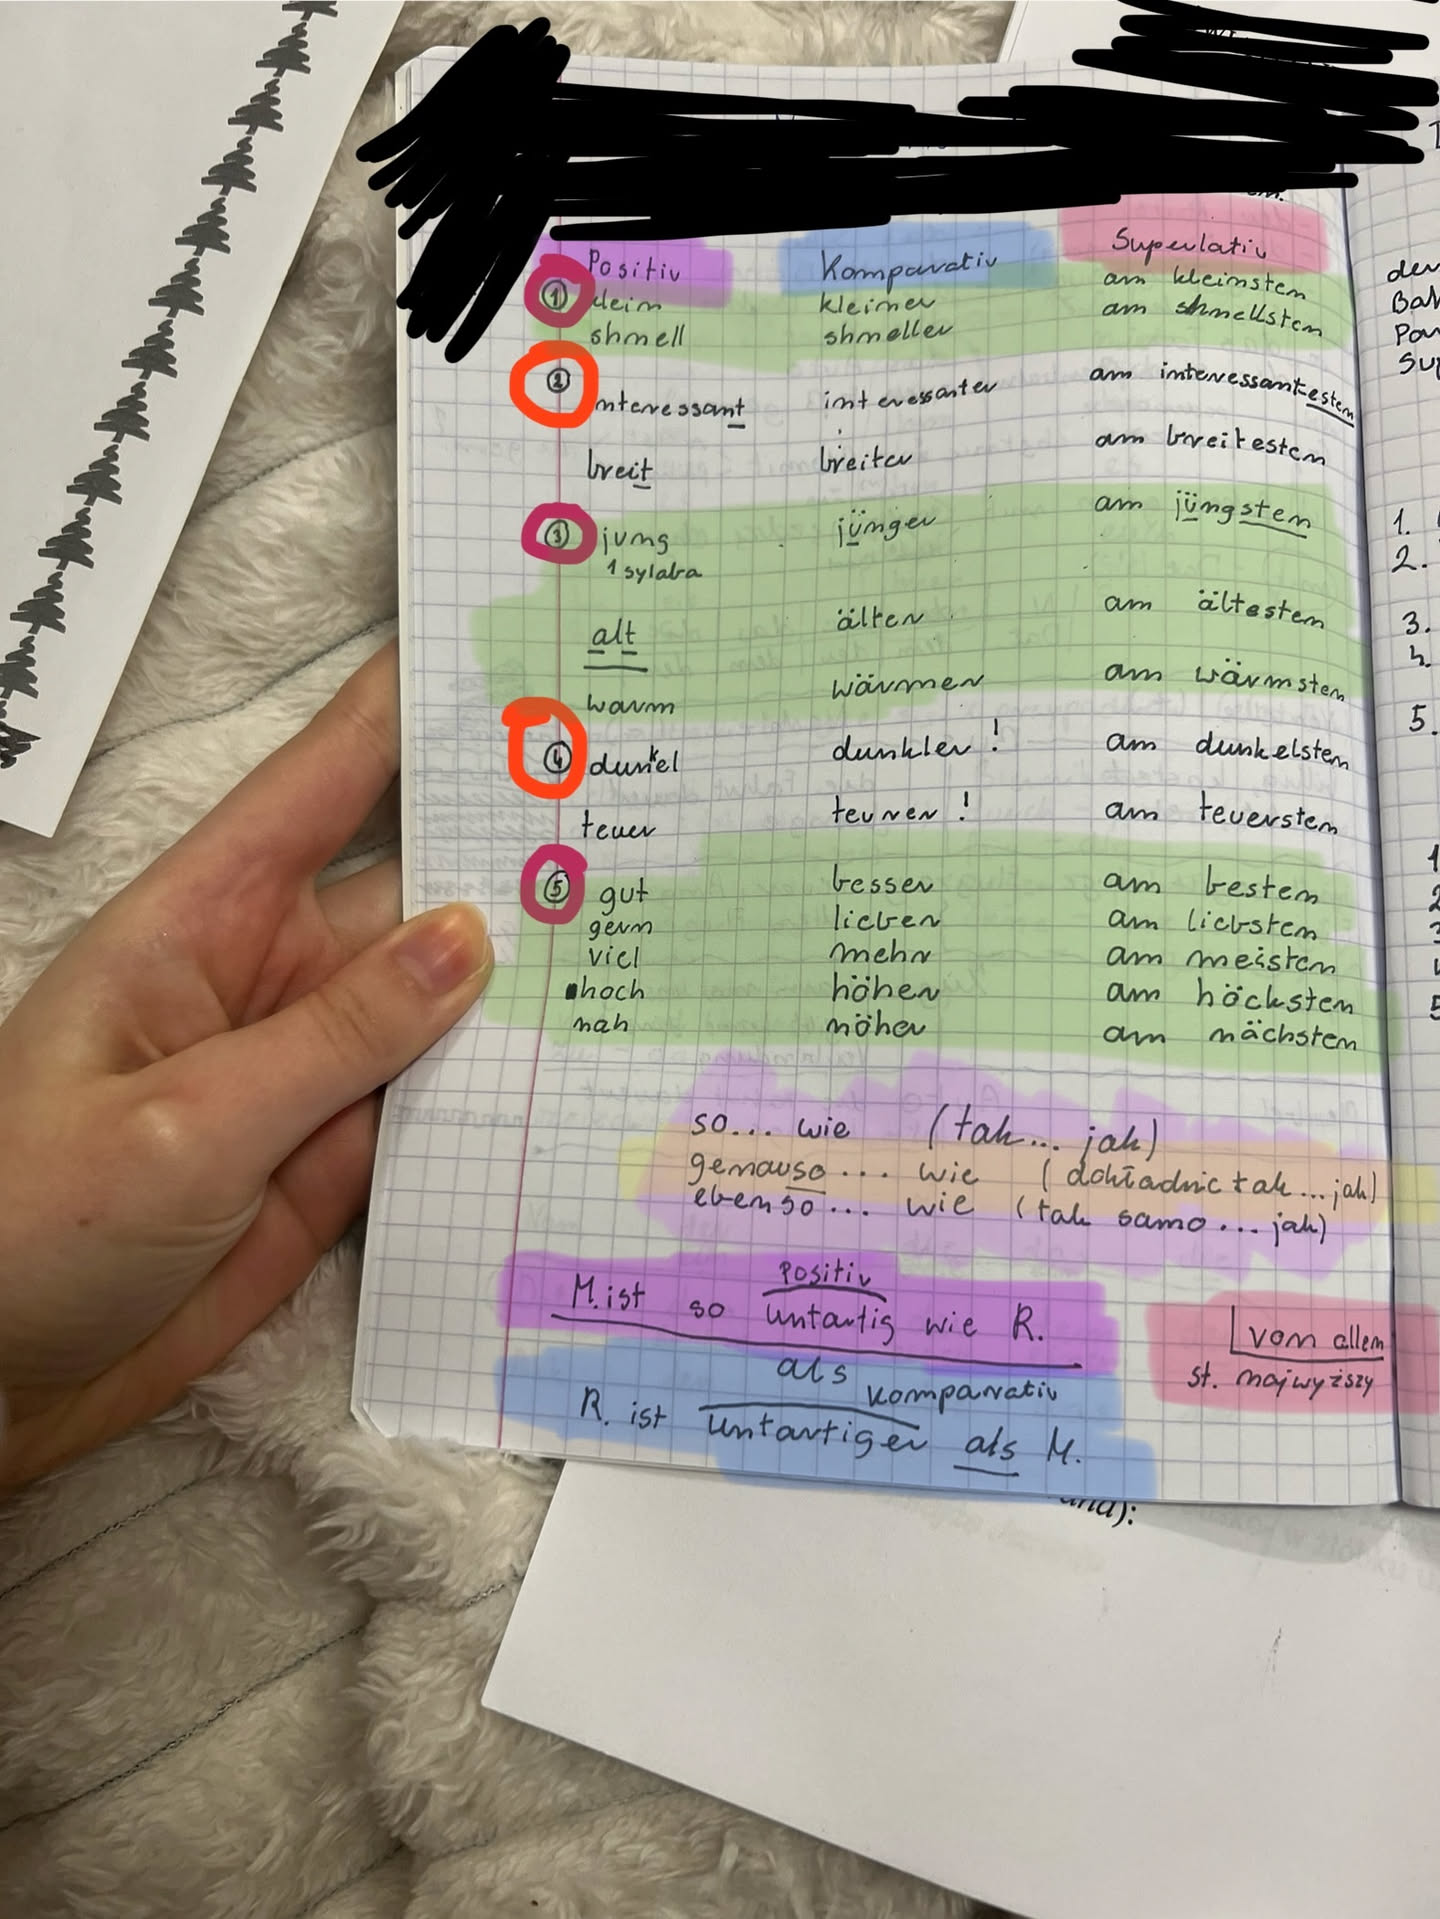 Positiv Komparativ Superlativ
① klein kleiner am kleinsten
shnell shneller am shnellsten
② interessant interessanter am interessant-esten
breit breiter am breitesten
③ jung jünger am jüngsten
1 sylaba
alt älter am ältesten
warm wärmer am wärmsten
④ dunkel dunkler ! am dunkelsten
teuer teurer ! am teuersten
⑤ gut besser am besten
gern lieber am liebsten
viel mehr am meisten
hoch höher am höcksten
nah nöher am nächsten
so... wie (tak... jak)
genauso... wie (dokładnie tak... jak)
ebenso... wie (tak samo... jak)
positiv
M. ist so untartig wie R.
als
komparativ
R. ist untartiger als M.
von allen
st. najwyższy
1.
2.
3.
4.
5.